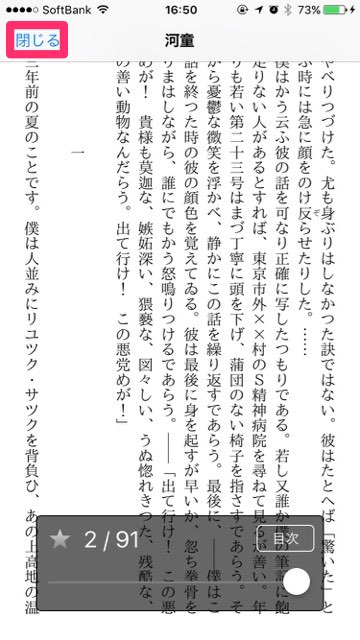 SoftBank 16:50 73%
閉じる 河童
やべりつづけた。尤も身ぶりはしなかつた訣ではない。彼はたとへば「驚いた」と
ふ時には急に顔をのけ反ぞらせたりした。……
僕はかう云ふ彼の話を可なり正確に写したつもりである。若し又誰か僕の筆記に飽
足りない人があるとすれば、東京市外××村のS精神病院を尋ねて見るが善い。年
りも若い第二十三号はまづ丁寧に頭を下げ、蒲団のない椅子を指さすであらう。そ
から憂鬱な微笑を浮かべ、静かにこの話を繰り返すであらう。最後に、――僕はこ
話を終つた時の彼の顔色を覚えてゐる。彼は最後に身を起すが早いか、忽ち拳骨を
りまはしながら、誰にでもかう怒鳴りつけるであらう。――「出て行け! この悪
めが! 貴様も莫迦な、嫉妬深い、猥褻な、図々しい、うぬ惚れきつた、残酷な、
の善い動物なんだらう。出て行け! この悪党めが!」
一
三年前の夏のことです。僕は人並みにリユツク・サツクを背負ひ、あの上高地の温
2 / 91 目次